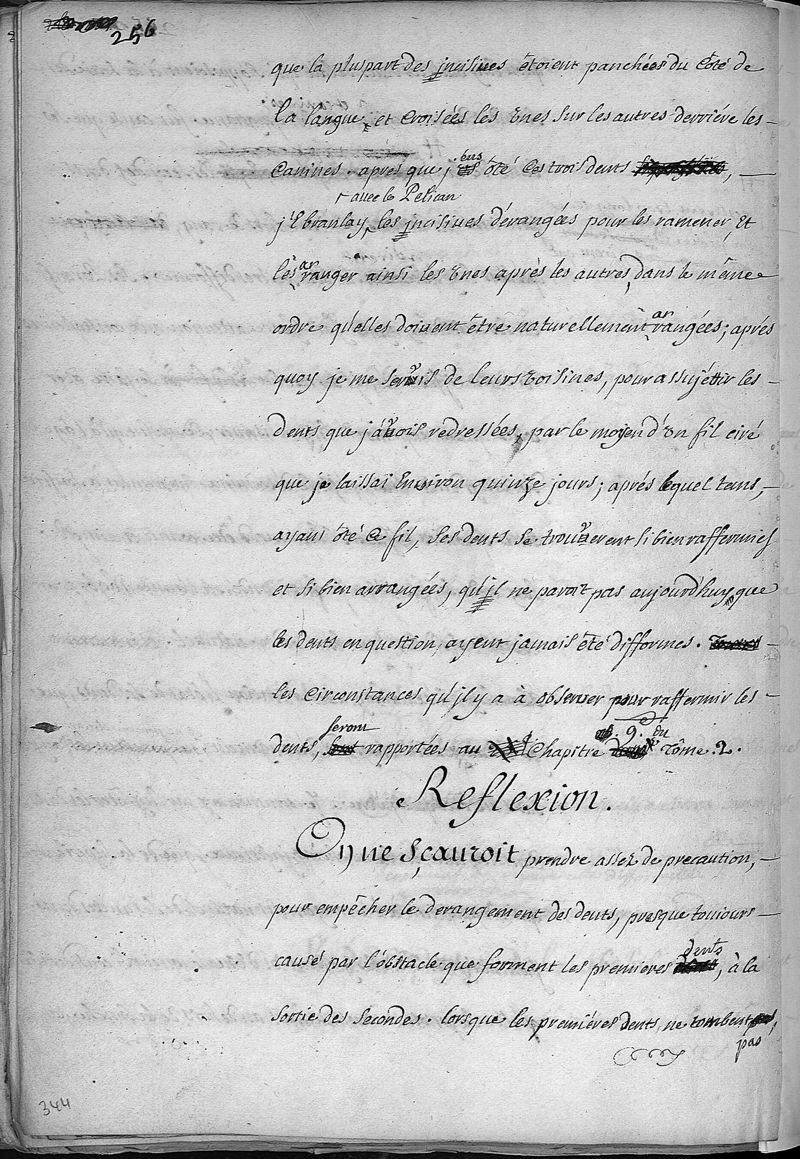 256
que la pluspart des incisives étoient panchées du côté de
la langue, et croisées les unes sur les autres derriére les
canines. aprés que j'eus ôté ces trois dents,
avec le Pelican
j'Ebranlay, les incisives dérangées pour les ramener, et
les arranger ainsi les unes aprés les autres, dans le même
ordre qu'elles doivent être naturellement arrangées; aprés
quoy je me servis de leurs voisines, pour assujéttir les
dents que j'avois redressées, par le moyen d'un fil ciré
que je laissai Environ quinze jours; aprés lequel tans,
ayant ôté ce fil, ses dents se trouverent si bien raffermies
et si bien arrangées, qu'il ne paroit pas aujourdhuy, que
les dents en question, ayent jamais été difformes.
les circonstances qu'il y a à observer pour raffermir les
dents, seront rapportées au Chapitre 9. du Tôme 2.
Reflexion.
On ne sçauroit prendre assez de precaution,
pour empêcher le derangement des dents, presque toujours
causé par l'obstacle que forment les premieres dents, à la
sortie des secondes. lorsque les premiéres dents, ne tombent
pas
344